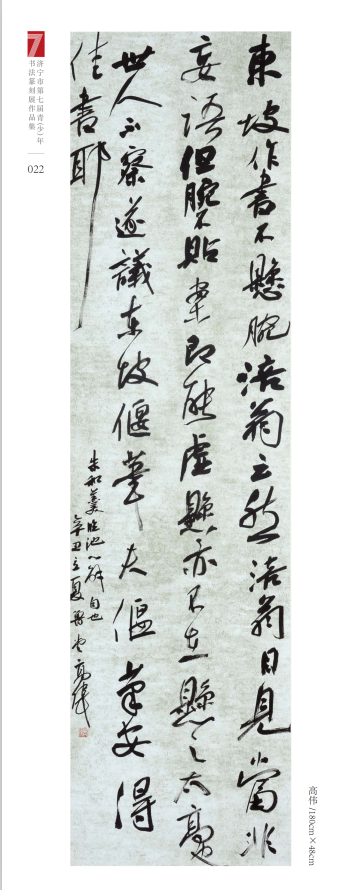 7
济宁市第七届青(少)年
书法篆刻展作品集
022
東坡作書不懸腕涪翁云然涪翁目見當非
妄語但腕不貼案即能虛懸亦不在懸之太高也
世人不察遂議東坡偃筆夫偃筆安得
佳書耶
朱和羹臨池心解句也
辛丑立夏 高偉
高伟 /180cm×48cm